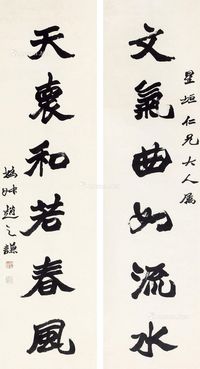 星垣仁兄大人属
文氣曲如流水
天襄和若春風
撝叔趙之謙